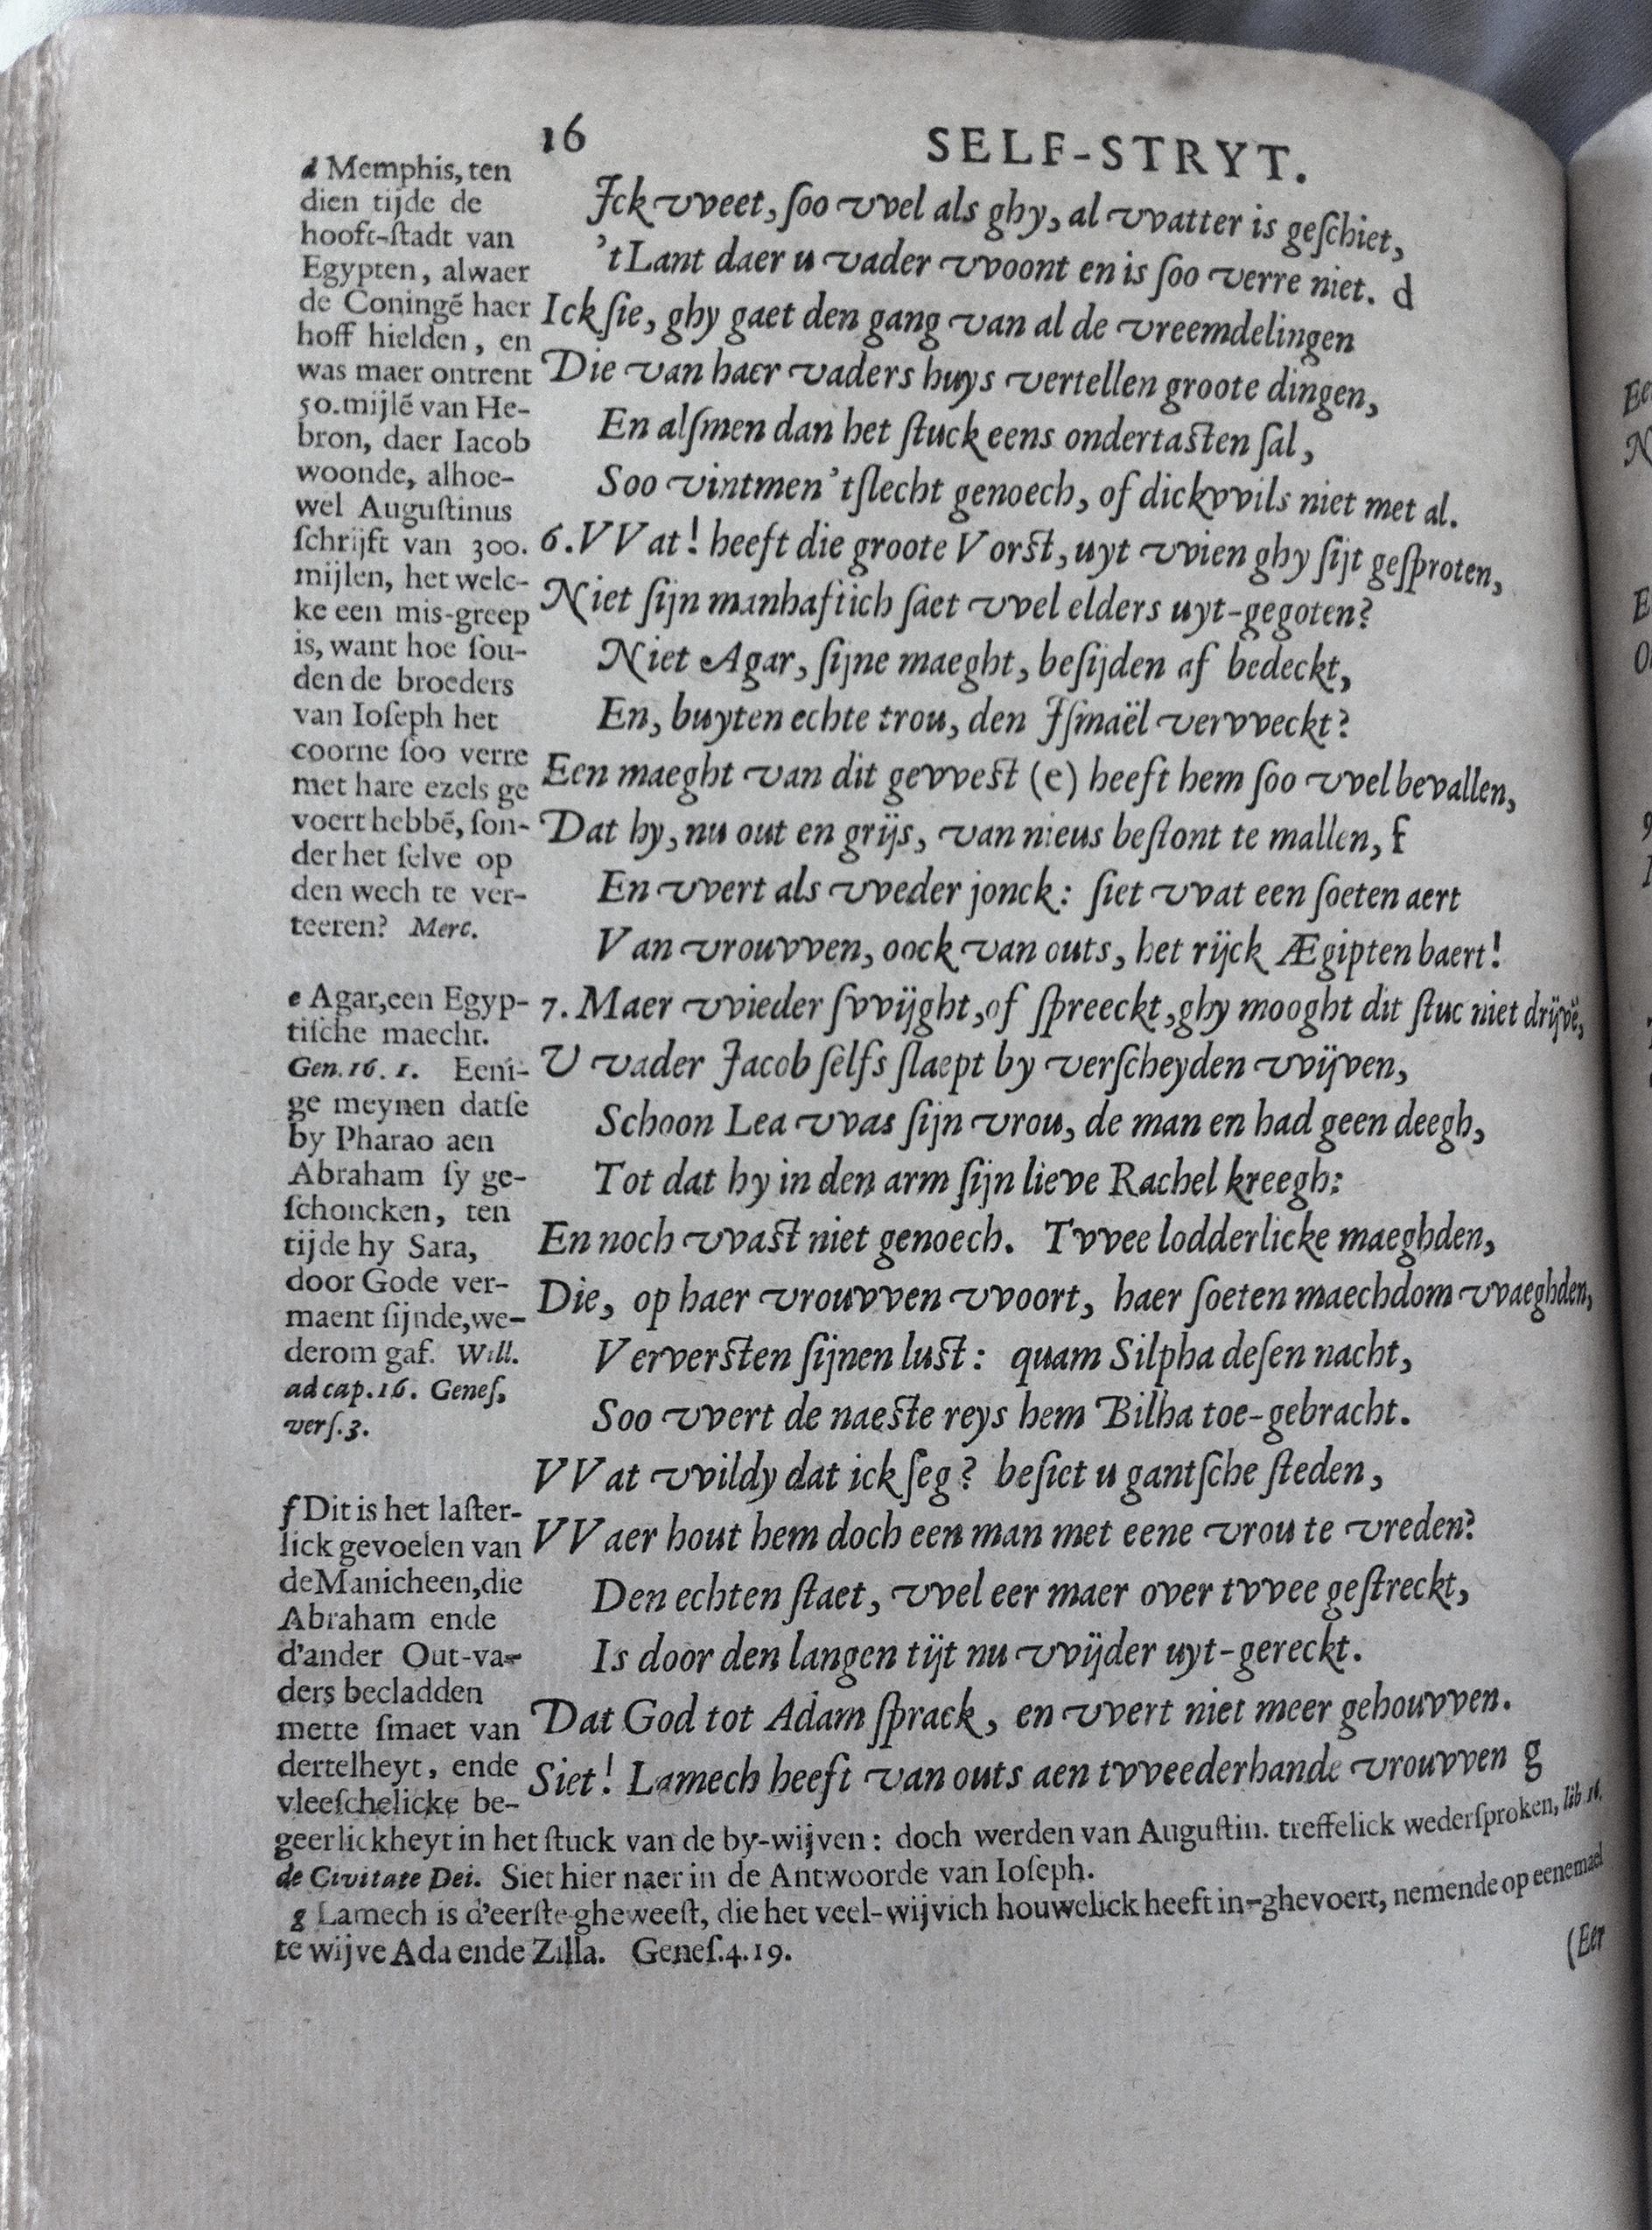 16
SELF-STRYT.
Ick vveet, ſoo vvel als ghy, al vvatter is geſchiet,
'tLant daer u vader vvoont en is ſoo verre niet. d
Ick ſie, ghy gaet den gang van al de vreemdelingen
Die van haer vaders huys vertellen groote dingen,
En alſmen dan het ſtuck eens ondertaſten ſal,
Soo vintmen'tſlecht genoech, of dickvvils niet met al.
6. VVat! heeft die groote Vorſt, uyt vvien ghy ſijt geſproten,
Niet ſijn manhaftich ſaet vvel elders uyt-gegoten?
Niet Agar, ſijne maeght, beſijden af bedeckt,
En, buyten echte trou, den Iſmaël vervveckt?
Een maeght van dit gevveſt (e) heeft hem ſoo vvel bevallen,
Dat hy, nu out en grijs, van nieus beſtont te mallen, f
En vvert als vveder jonck: ſiet vvat een ſoeten aert
Van vrouvven, oock van outs, het rijck Ægipten baert!
7. Maer vvieder ſvvijght, of ſpreeckt, ghy mooght dit ſtuc niet drijvẽ,
U vader Jacob ſelfs ſlaept by verſcheyden vvijven,
Schoon Lea vvas ſijn vrou, de man en had geen deegh,
Tot dat hy in den arm ſijn lieve Rachel kreegh:
En noch vvaſt niet genoech. Tvvee lodderlicke maeghden,
Die, op haer vrouvven vvoort, haer ſoeten maechdom vvaeghden,
Ververſten ſijnen luſt: quam Silpha deſen nacht,
Soo vvert de naeſte reys hem Bilha toe-gebracht.
VVat vvildy dat ick ſeg? beſiet u gantſche ſteden,
VVaer hout hem doch een man met eene vrou te vreden?
Den echten ſtaet, vvel eer maer over tvvee geſtreckt,
Is door den langen tijt nu vvijder uyt-gereckt.
Dat God tot Adam ſprack, en vvert niet meer gehouvven.
Siet! Lamech heeft van outs aen tvveederhande vrouvven g
d Memphis, ten
dien tijde de
hooft-ſtadt van
Egypten, alwaer
de Coningẽ haer
hoff hielden, en
was maer ontrent
50.mijlẽ van He-
bron, daer Iacob
woonde, alhoe-
wel Auguſtinus
ſchrijft van 300.
mijlen, het welc-
ke een mis-greep
is, want hoe ſou-
den de broeders
van Ioſeph het
coorne ſoo verre
met hare ezels ge
voert hebbẽ, ſon-
der het ſelve op
den wech te ver-
teeren? Merc.
e Agar,een Egyp-
tiſche maecht.
Gen.16. 1. Eeni-
ge meynen datſe
by Pharao aen
Abraham ſy ge-
ſchoncken, ten
tijde hy Sara,
door Gode ver-
maent ſijnde,we-
derom gaf. Will.
ad cap.16. Geneſ,
verſ.3.
f Dit is het laſter-
lick gevoelen van
deManicheen,die
Abraham ende
d'ander Out-va-
ders becladden
mette ſmaet van
dertelheyt, ende
vleeſchelicke be-
geerlickheyt in het ſtuck van de by-wijven: doch werden van Auguſtin. treffelick wederſproken, lib.16.
de Civitate Dei. Siet hier naer in de Antwoorde van Ioſeph.
g Lamech is d'eerſte gheweeſt, die het veel-wijvich houwelick heeft in-ghevoert, nemende op eenemael
te wijve Ada ende Zilla. Geneſ.4.19.
(Eer